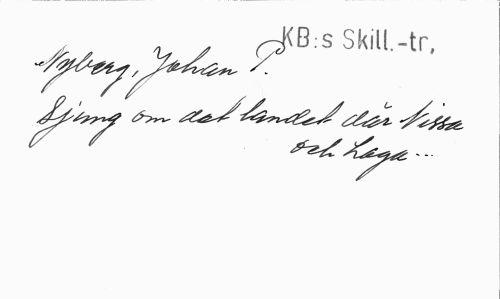 KB:s Skill.-tr,
Nyberg, Johan P.
Sjung om det landet där Nissa
och Laga...